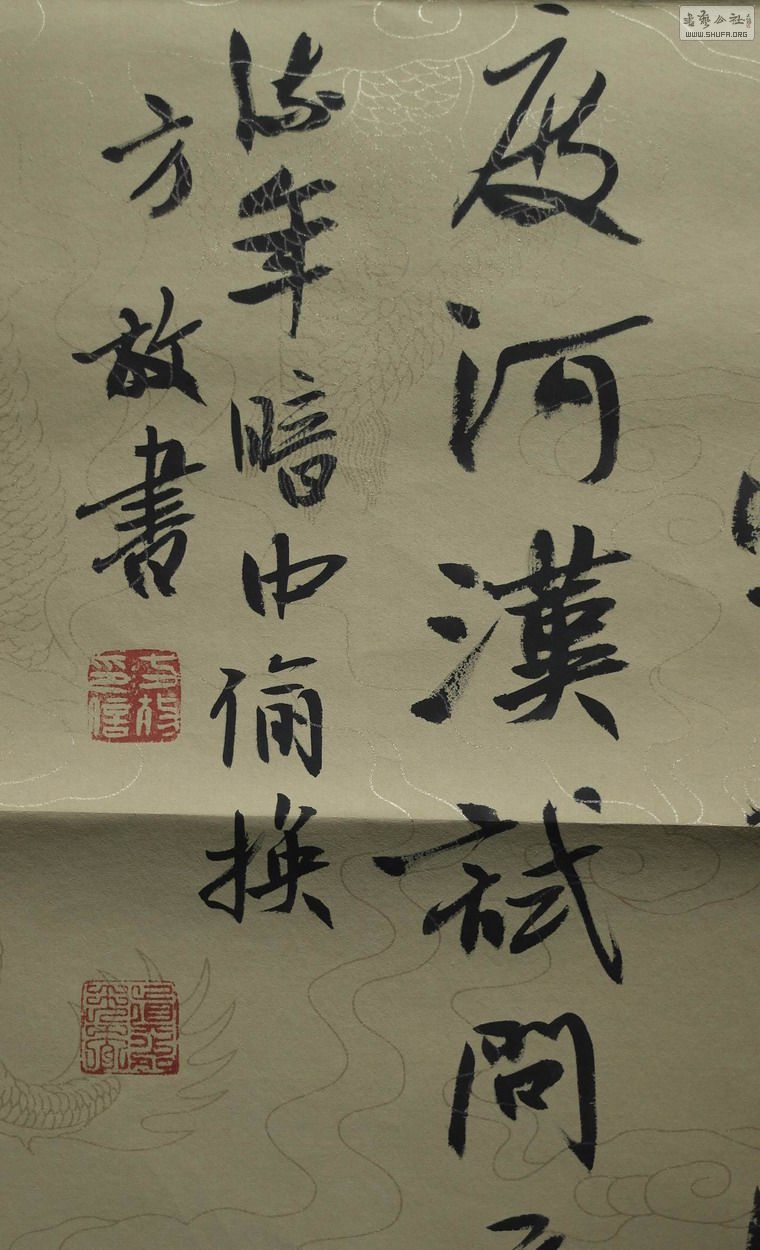 度河漢試問
流年暗中偷換
方放書
書藝公社
WWW.SHUFA.ORG